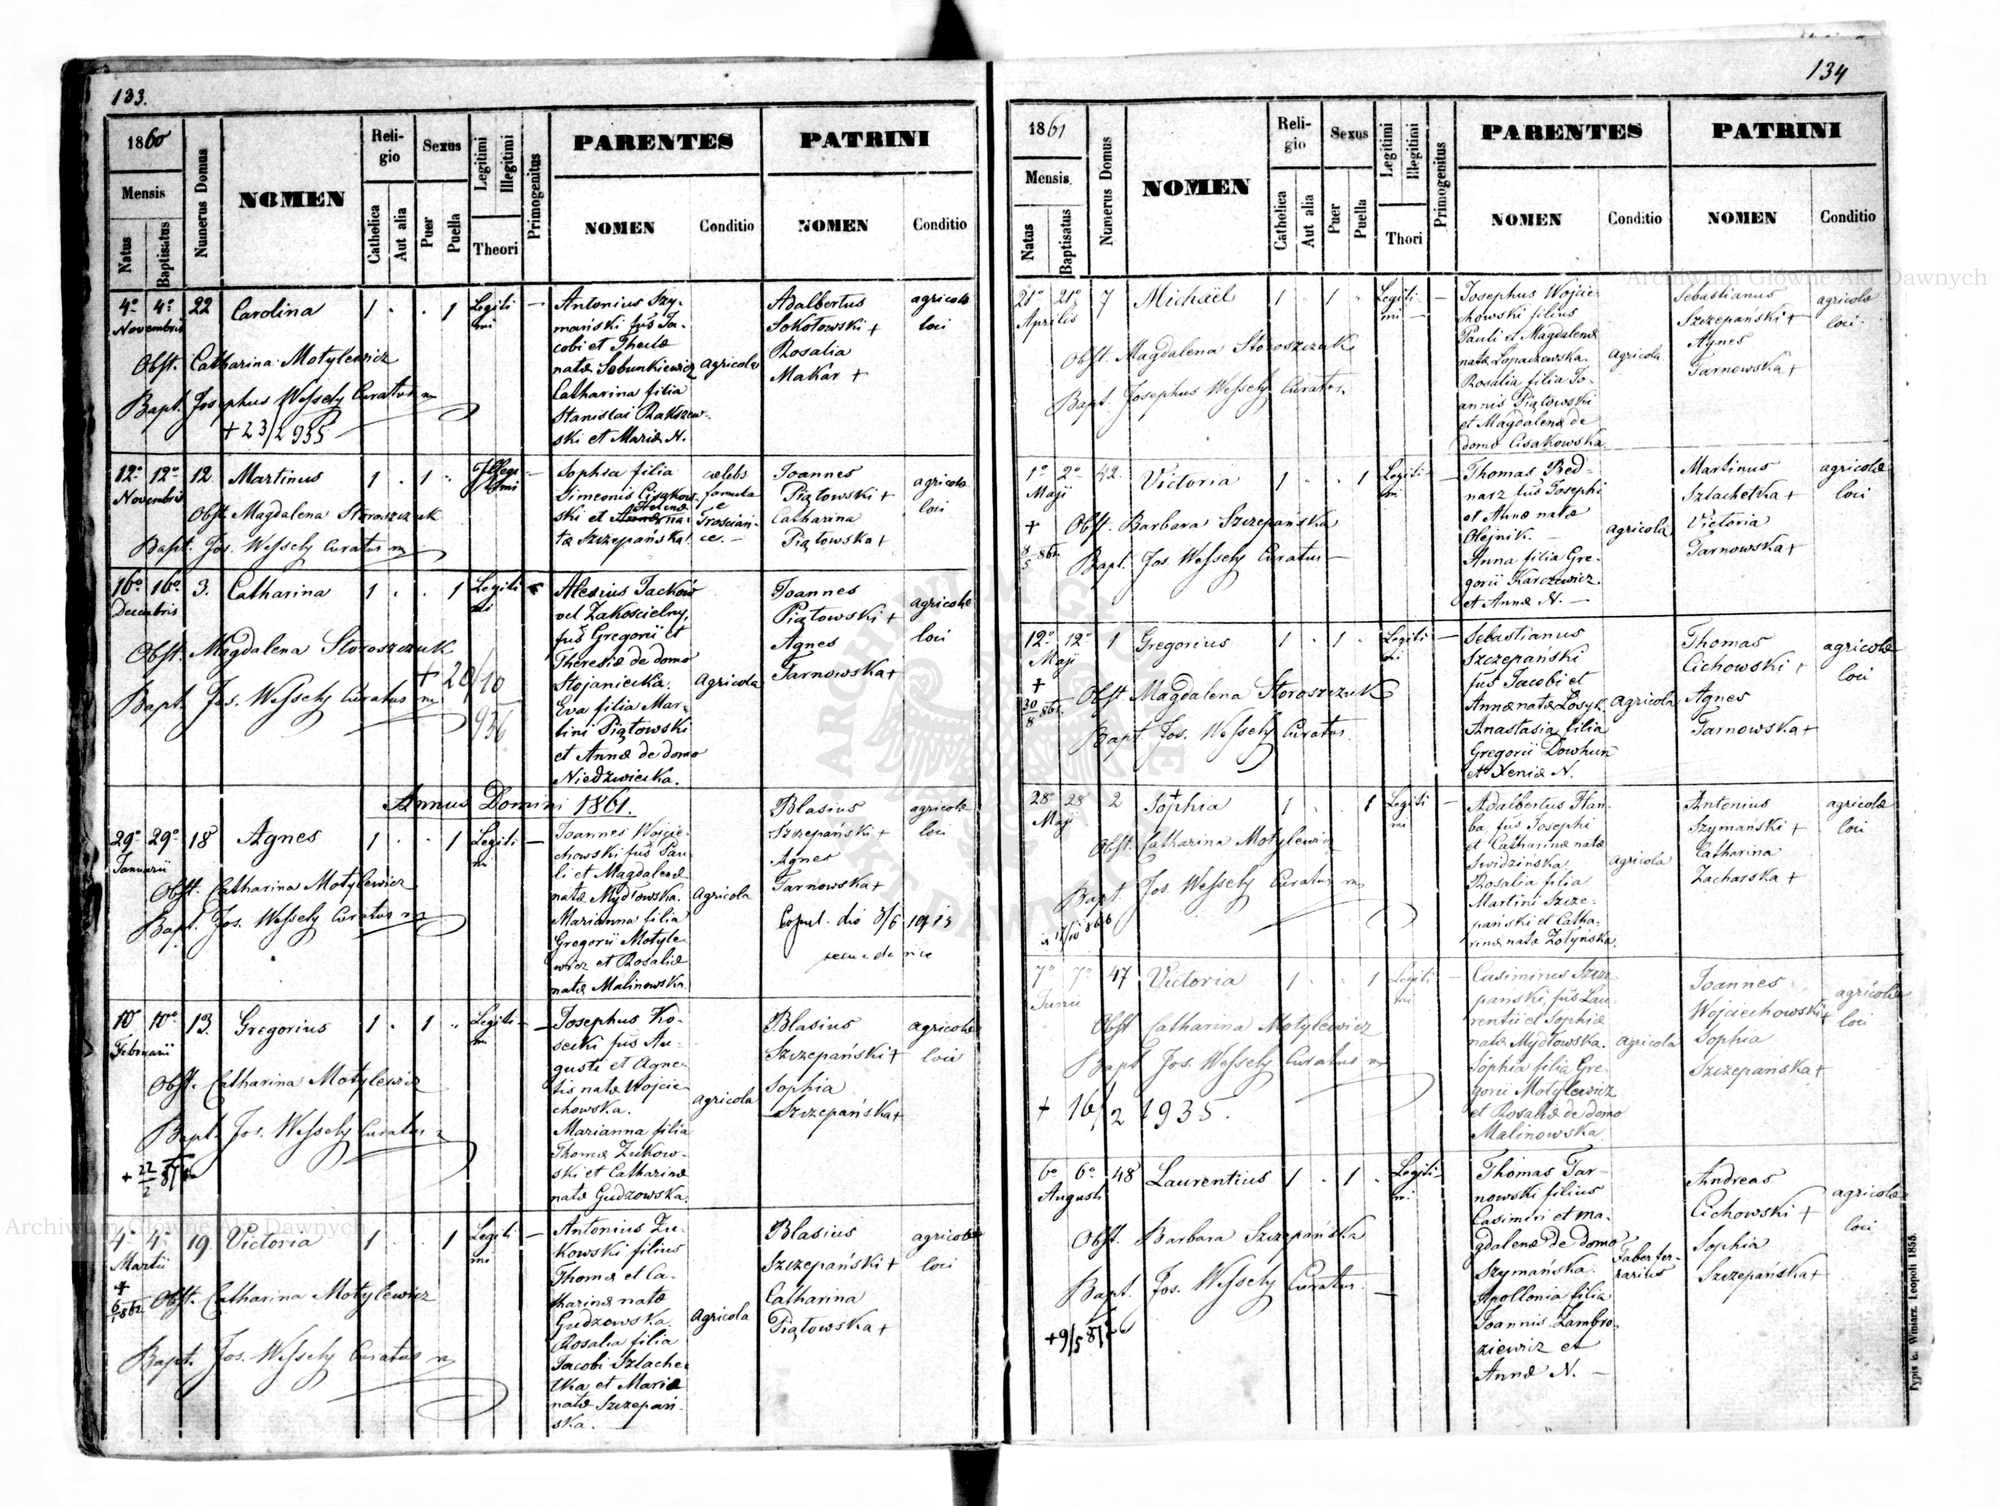 133.
1860
Mensis
Natus
Baptisatus
Numerus Domus
NOMEN
Religio
Catholica
Aut alia
Sexus
Puer
Puella
Legitimi
Illegitimi
Theori
Primogenitus
PARENTES
NOMEN
Conditio
PATRINI
NOMEN
Conditio
4º 4º 22 Carolina 1 . . 1 Legiti
mi
Novembris
Obst. Catharina Motylewicz
Bapt. Josephus Wessely Curatus
+ 23/2 935
Antonius Szy-
mański fus Ja-
cobi et Theclæ
natæ Sobunkiewicz
Catharina filia
Stanislai Rakszew-
ski et Mariæ N.
Agricola
Adalbertus
Sokołowski +
Rosalia
Makar +
agricolæ
loci
12º 12º 12. Martinus 1 . 1 .
Novembris
Obst. Magdalena Storoszczuk
Bapt. Jos. Wessely Curatus
Sophia filia
Simeonis Cisakow-
ski et Helenæ na-
tæ Szczepańska.
cælebs
famula
e
Trościań-
ce. -
Joannes
Piątowski +
Catharina
Piątowska +
agricolæ
loci
16º 16º 3. Catharina 1 . . 1 Legiti
mi
Decembris
Obst. Magdalena Storoszczuk
Bapt. Jos. Wessely Curatus
+ 20/10
936
Alexius Jacków
vel Zakościelny,
fus Gregorii et
Theresiæ de domo
Stojaniecka.
Eva filia Mar-
tini Piątowski
et Annæ de domo
Niedzwiecka.
Agricola
Joannes
Piątowski +
Agnes
Tarnowska +
agricolæ
loci
Annus Domini 1861.
29º 29º 18 Agnes 1 . . 1 Legiti
mi
Januarii
Obst. Catharina Motylewicz
Bapt. Jos. Wessely Curatus
Joannes Wojcie-
chowski fus Pau-
li et Magdalenæ
natæ Mydłowska.
Marianna filia
Gregorii Motyle-
wicz et Rosaliæ
natæ Malinowska.
Agricola
Blasius
Szczepański +
Agnes
Tarnowska +
agricolæ
loci
Copul. die
10º 10º 13. Gregorius 1 . 1 . Legiti-
mi
Februarii
Obst. Catharina Motylewicz
Bapt. Jos. Wessely Curatus
+ 22/2
Josephus Ko-
secki fus Au-
gusti et Agne-
tis natæ Wojcie-
chowska.
Marianna filia
Thomæ Żukow-
ski et Catharinæ
natæ Gudzowska.
Agricola
Blasius
Szczepański +
Sophia
Szczepańska +
agricolæ
loci
4º 4º 19. Victoria 1 . . 1 Legiti
mi
Martii
+
Obst. Catharina Motylewicz
Bapt. Jos. Wessely Curatus
Antonius Żu-
kowski filius
Thomæ et Ca-
tharinæ natæ
Gudzowska.
Rosalia filia
Jacobi Szlache-
tka et Mariæ
natæ Szczepań-
ska.
Agricola
Blasius
Szczepański +
Catharina
Piątowska +
agricolæ
loci
134
1861
Mensis
Natus
Baptisatus
Numerus Domus
NOMEN
Religio
Catholica
Aut alia
Sexus
Puer
Puella
Legitimi
Illegitimi
Thori
Primogenitus
PARENTES
NOMEN
Conditio
PATRINI
NOMEN
Conditio
21º 21º 7 Michaël 1 . 1 . Legiti-
mi
Aprilis
Obst. Magdalena Storoszczuk
Bapt. Josephus Wessely Curatus.
Josephus Wojcie-
chowski filius
Pauli et Magdalenæ
natæ Łopaczewska.
Rosalia filia Jo-
annis Piątowski
et Magdalenæ de
domo Cisakowska
Agricola
Sebastianus
Szczepański +
Agnes
Tarnowska +
agricolæ
loci
1º 2º 42. Victoria 1 . . 1 Legiti
mi
Maji
+
8/5 861
Obst. Barbara Szczepańska
Bapt. Jos. Wessely Curatus
Thomas Bed-
narz fus Josephi
et Annæ natæ
Olejnik. -
Anna filia Gre-
gorii Karczewicz
et Annæ N. -
agricola
Martinus
Szlachetka +
Victoria
Tarnowska +
agricolæ
loci
12º 12º 1 Gregorius 1 . 1 . Legiti
mi
Maji
+
30/8 861
Obst. Magdalena Storoszczuk
Bapt. Jos. Wessely Curatus.
Sebastianus
Szczepański
fus Jacobi et
Annæ natæ Łosyk.
Anastasia filia
Gregorii Dowhun
et Xeniæ N.
Agricola
Thomas
Cichowski +
Agnes
Tarnowska +
agricolæ
loci
28 28 2 Sophia 1 . . 1 Legiti
mi
Maji
Obst. Catharina Motylewicz
Bapt. Jos. Wessely Curatus
Adalbertus Han-
ba, fus Josephi
et Catharinæ natæ
Swidzińska.
Rosalia filia
Martini Szcze-
pański et Catha-
rinæ natæ Żołyńska.
Agricola
Antonius
Szymański +
Catharina
Zacharska +
agricolæ
loci
7º 7º 47 Victoria 1 . . 1 Legiti
mi
Junii
Obst. Catharina Motylewicz
Bapt. Jos. Wessely Curatus
+ 16/2 1935.
Casimirus Szcze-
pański, fus Lau-
rentii et Sophiæ
natæ Mydłowska.
Sophia filia Gre-
gorii Motylewicz
et Rosaliæ de domo
Malinowska
Agricola
Joannes
Wojciechowski +
Sophia
Szczepańska +
agricolæ
loci
6º 6º 48 Laurentius 1 . 1 . Legiti-
mi
Augusti
Obst. Barbara Szczepańska
Bapt. Jos. Wessely Curatus
Thomas Tar-
nowski filius
Casimiri et Ma-
gdalenæ de domo
Szymańska.
Apollonia filia
Joannis Zambro-
ziewicz et
Annæ N. -
Faber fer-
rarius
Andreas
Cichowski +
Sophia
Szczepańska +
agricolæ
loci
Typis E. Winiarz. Leopoli 1855.
Archiwum Główne Akt Dawnych
Archiwum Główne Akt Dawnych